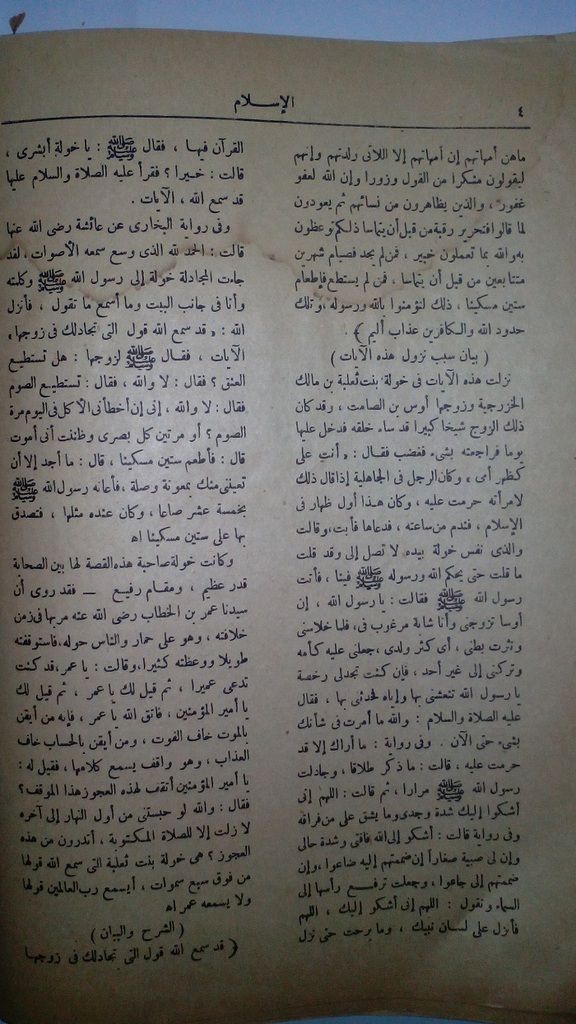 ٤
الإسلام
ماهن أمهاتهم إن أمهاتهم إلا اللائى ولدنهم وإنهم
ليقولون منكرا من القول وزورا وإن الله لعفو
غفور ، والذين يظاهرون من نسائهم ثم يعودون
لما قالوا فتحرير رقبة من قبل أن يتماسا ذلكم توعظون
به والله بما تعملون خبير ، فمن لم يجد فصيام شهرين
متتابعين من قبل أن يتماسا ، فمن لم يستطع فإطعام
ستين مسكينا ، ذلك لتؤمنوا بالله ورسوله ، وتلك
حدود الله والكافرين عذاب أليم ﴾ .
( بيان سبب نزول هذه الآيات )
نزلت هذه الآيات فى خولة بنت ثعلبة بن مالك
الخزرجية وزوجها أوس بن الصامت ، وقد كان
ذلك الزوج شيخا كبيرا قد ساء خلقه فدخل عليها
يوما فراجعته بشىء فغضب فقال : « أنت على
كظهر أمى » وكان الرجل فى الجاهلية إذا قال ذلك
لامرأته حرمت عليه ، وكان هذا أول ظهار فى
الإسلام ، فندم من ساعته ، فدعاها فأبت ، وقالت
والذى نفس خولة بيده لا تصل إلى وقد قلت
ما قلت حتى يحكم الله ورسوله ﷺ فينا ، فأتت
رسول الله ﷺ فقالت : يا رسول الله ، إن
أوسا تزوجنى وأنا شابة مرغوب فى ، فلما خلا سنى
ونثرت بطنى ، أى كثر ولدى ، جعلنى عليه كأمه
وتركنى إلى غير أحد ، فإن كنت تجد لى رخصة
يا رسول الله تنعشنى بها وإياه فحدثنى بها ، فقال
عليه الصلاة والسلام : والله ما أمرت فى شأنك
بشىء حتى الآن . وفى رواية : ما أراك إلا قد
حرمت عليه ، قالت : ما ذكر طلاقا ، وجادلت
رسول الله ﷺ مرارا ، ثم قالت : اللهم إنى
أشكوا إليك شدة وجدى وما يشق على من فراقه
وفى رواية قالت : أشكو إلى الله فاقتى وشدة حالى
وإن لى صبية صغاراً إن ضممتهم إليه ضاعوا ، وإن
ضممتهم إلى جاعوا ، وجعلت ترفع رأسها إلى
السماء وتقول : اللهم إنى أشكو إليك ، اللهم
فأنزل على لسان نبيك ، وما برحت حتى نزل
القرآن فيها ، فقال ﷺ : يا خولة أبشرى ،
قالت : خيرا ؟ فقرأ عليه الصلاة والسلام عليها
قد سمع الله ، الآيات .
وفى رواية البخارى عن عائشة رضى الله عنها
قالت : الحمد لله الذى وسع سمعه الأصوات ، لقد
جاءت المجادلة خولة إلى رسول الله ﷺ وكلمته
وأنا فى جانب البيت وما أسمع ما تقول ، فأنزل
الله : « قد سمع الله قول التى تجادلك فى زوجها »
الآيات ، فقال ﷺ لزوجها : هل تستطيع
العتق ؟ فقال : لا والله ، فقال : تستطيع الصوم
فقال : لا والله ، إنى إن أخطأنى الأكل فى اليوم مرة
الصوم ؟ أو مرتين كل بصرى وظننت أنى أموت
قال : فأطعم ستين مسكينا ، قال : ما أجد إلا أن
تعيننى منك بمعونة وصلة ، فأعانه رسول الله ﷺ
بخمسة عشر صاعا ، وكان عنده مثلها ، فتصدق
بها على ستين مسكينا اه
وكانت خولة صاحبة هذه القصة لها بين الصحابة
قدر عظيم ، ومقام رفيع — فقد روى أن
سيدنا عمر بن الخطاب رضى الله عنه مر بها فى زمن
خلافته ، وهو على حمار والناس حوله ، فاستوقفته
طويلا ووعظته كثيرا ، وقالت : يا عمر ، قد كنت
تدعى عميرا ، ثم قيل لك يا عمر ، ثم قيل لك
يا أمير المؤمنين ، فاتق الله يا عمر ، فإنه من أيقن
بالموت خاف الفوت ، ومن أيقن بالحساب خاف
العذاب ، وهو واقف يسمع كلامها ، فقيل له :
يا أمير المؤمنين أتقف لهذه العجوز هذا الموقف؟
فقال : والله لو حبستنى من أول النهار إلى آخره
لا زلت إلا للصلاة المكتوبة ، أتدرون من هذه
العجوز ؟ هى خولة بنت ثعلبة التى سمع الله قولها
من فوق سبع سموات ، أيسمع رب العالمين قولها
ولا يسمعه عمر اه
( الشرح والبيان )
﴿ قد سمع الله قول التى تجادلك فى زوجها